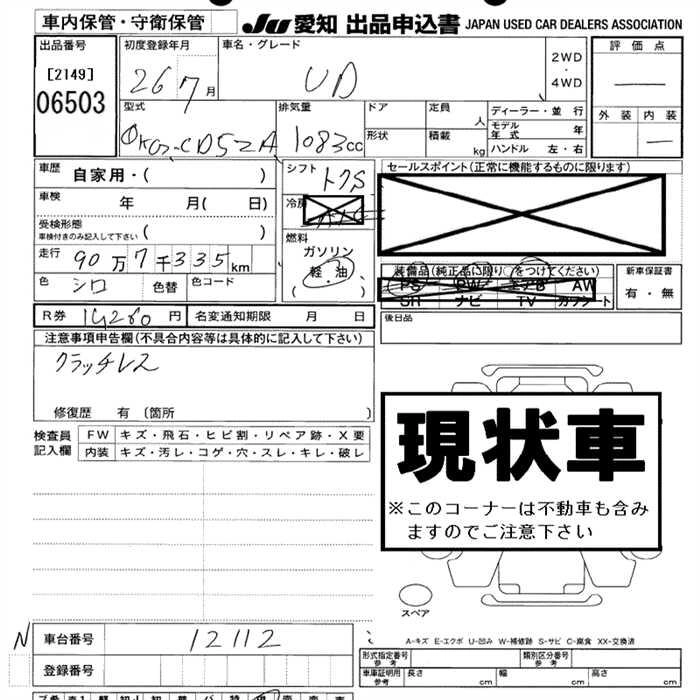 車内保管・守衛保管 JU 愛知 出品申込書 JAPAN USED CAR DEALERS ASSOCIATION
出品番号 初度登録年月 車名・グレード 2WD・4WD 評価点
[2149] 26 7月 UD
06503
型式 排気量 ドア 定員 人 ディーラー・並行 外装 内装
CD52A 1083cc 形状 積載 kg モデル年式 年
ハンドル 左・右
車歴 自家用・( ) シフト セールスポイント(正常に機能するものに限ります)
車検 年 月( 日) 冷房
受検形態
車検付きのみ記入して下さい ( ) 燃料
ガソリン
走行 90万7千335km 軽・油
( )
装備品(純正品に限り○をつけてください) 新車保証書
PS PW エアB AW 有・無
SR ナビ TV カワシート
色 シロ 色替 色コード
R券 14260円 名変通知期限 月 日 後日品
注意事項申告欄(不具合内容等は具体的に記入して下さい)
クラッチレス
修復歴 有 (箇所 )
現状車
※このコーナーは不動車も含み
ますのでご注意下さい
検査員 FW キズ・飛石・ヒビ割・リペア跡・X要
記入欄 内装 キズ・汚レ・コゲ・穴・スレ・キレ・破レ
スペア
A-キズ E-エクボ U-凹み W-補修跡 S-サビ C-腐食 XX-交換済
N 車台番号 12112
登録番号
型式指定番号 参考 類別区分番号 参考
車庫証明用 参考 長さ cm 幅 cm 高さ cm